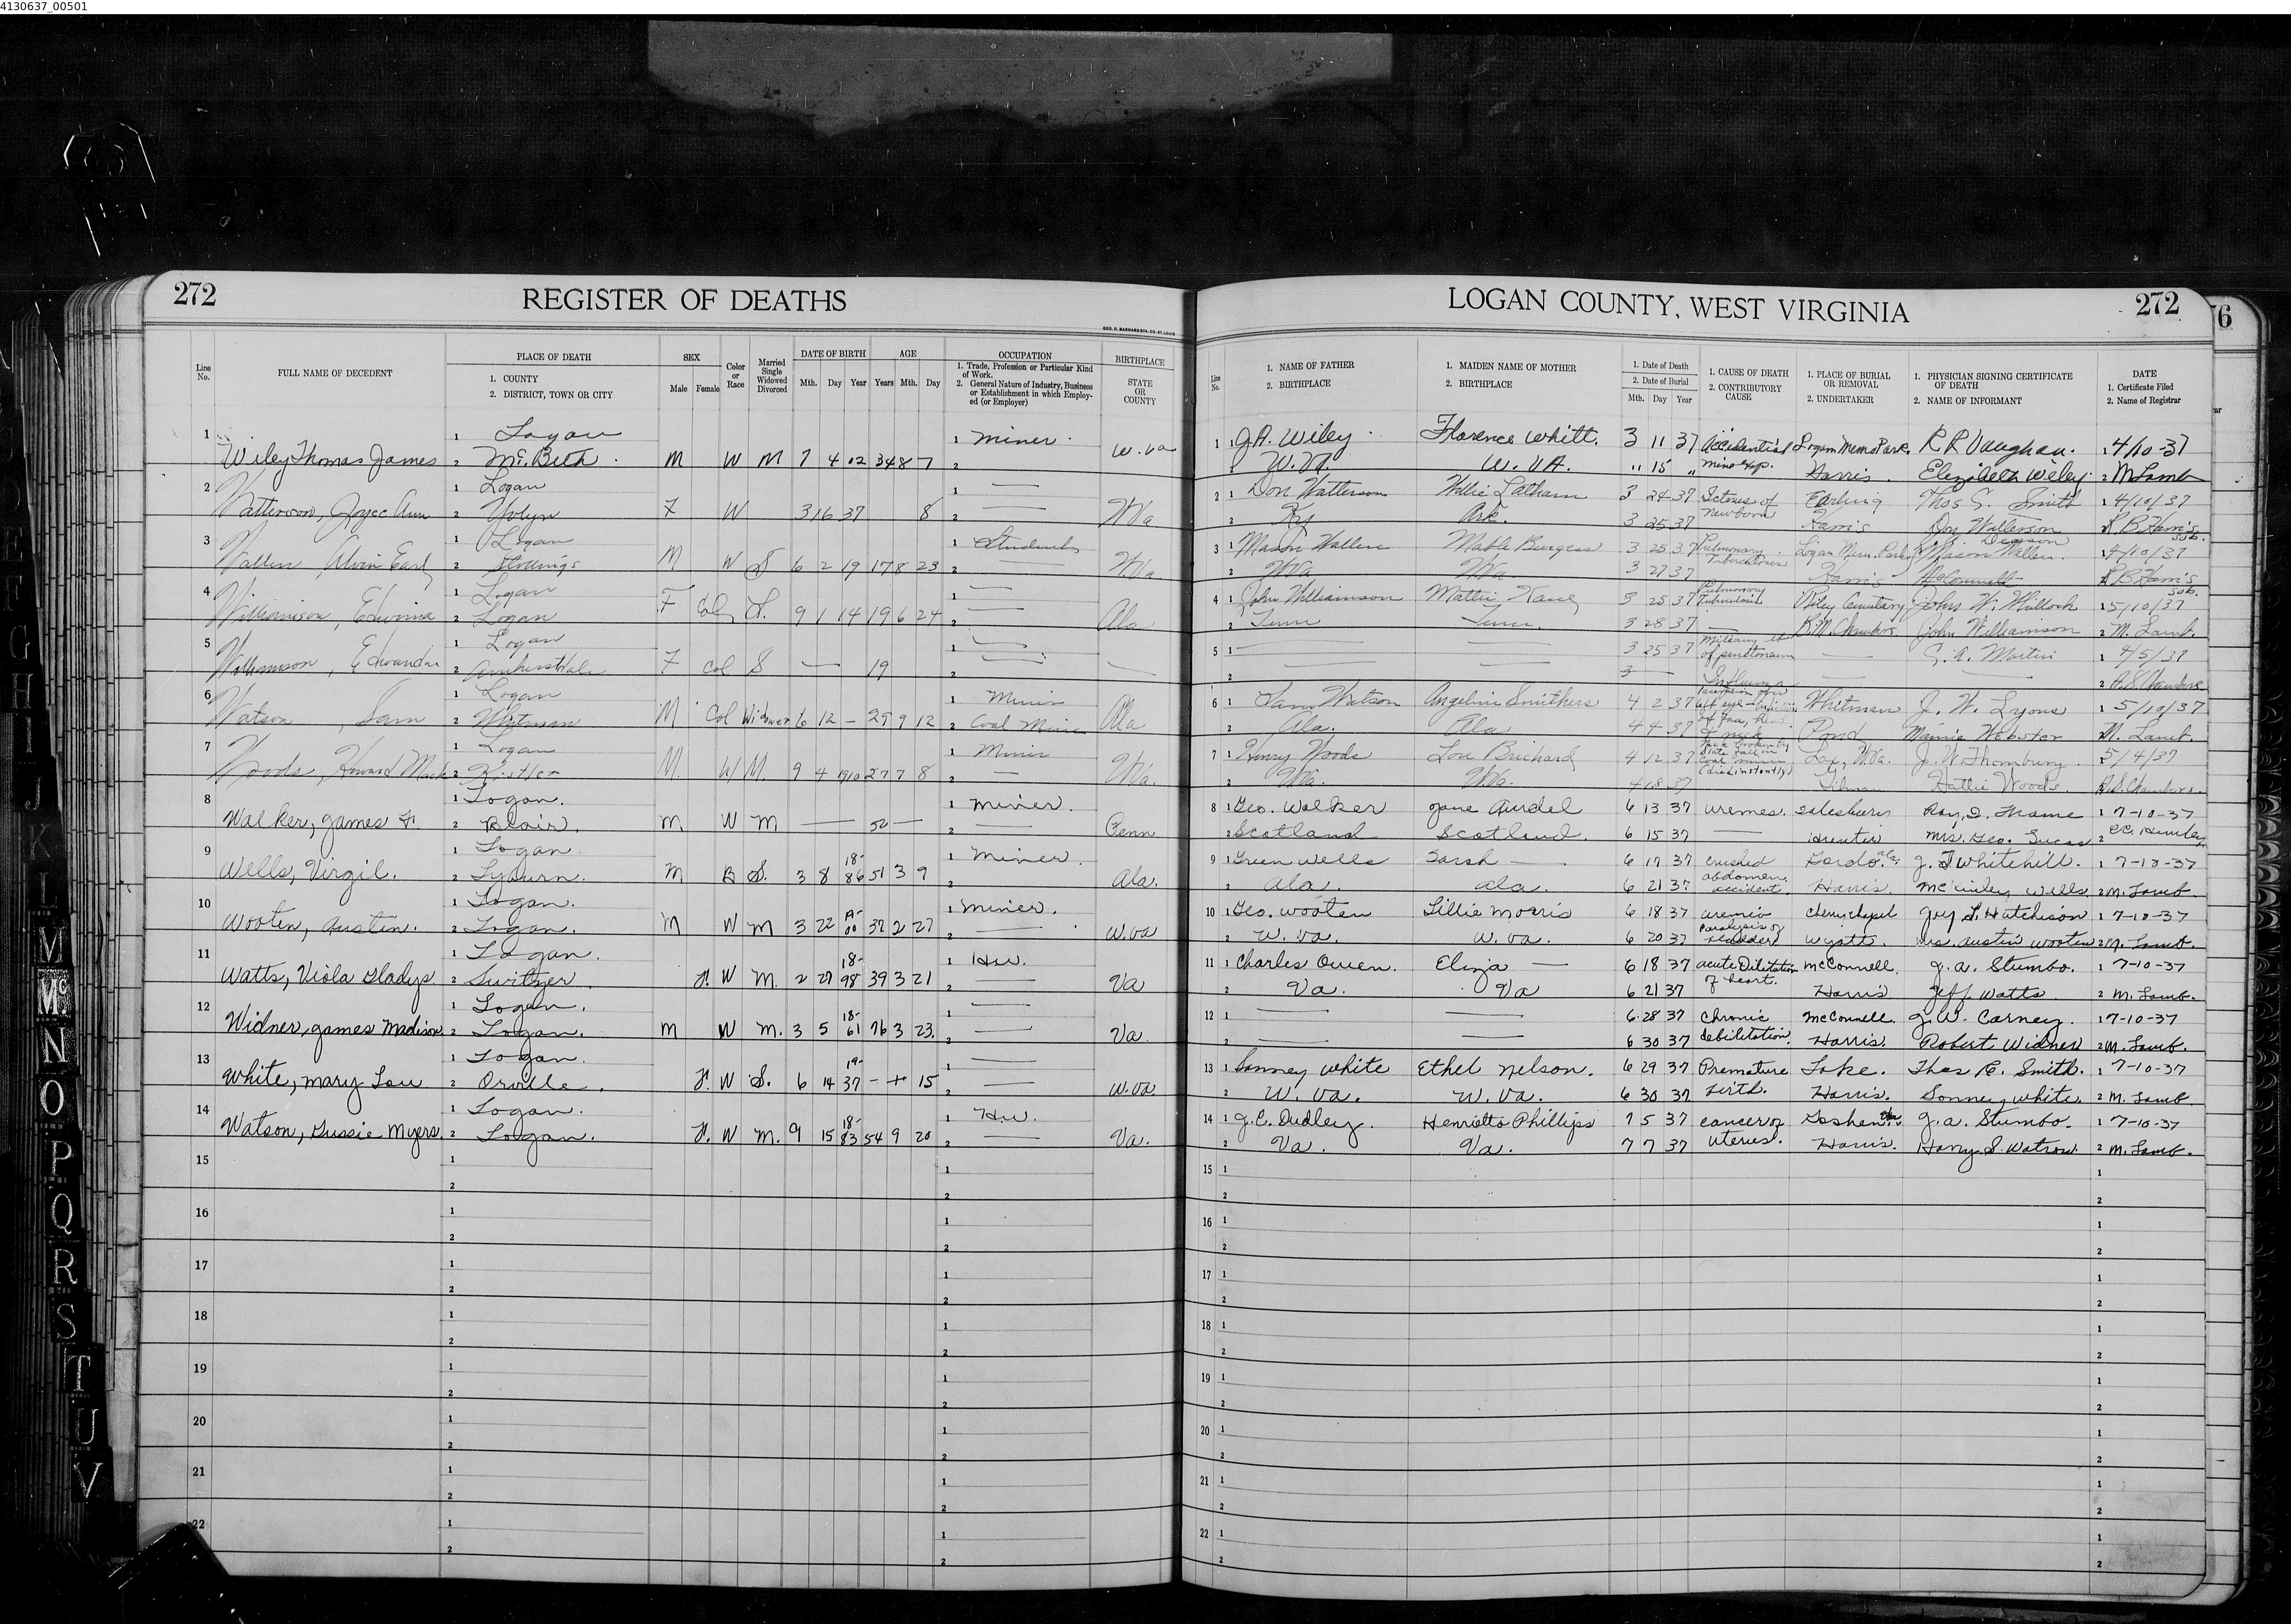 4130637_00501
272 REGISTER OF DEATHS
GEO. D. BARNARD STA. CO. ST. LOUIS
LOGAN COUNTY, WEST VIRGINIA 272
Line No. FULL NAME OF DECEDENT PLACE OF DEATH 1. COUNTY 2. DISTRICT, TOWN OR CITY SEX Male Female Color or Race Married Single Widowed Divorced DATE OF BIRTH Mth. Day Year AGE Years Mth. Day OCCUPATION 1. Trade, Profession or Particular Kind of Work. 2. General Nature of Industry, Business or Establishment in which Employed (or Employer) BIRTHPLACE STATE OR COUNTY
Line No. 1. NAME OF FATHER 2. BIRTHPLACE 1. MAIDEN NAME OF MOTHER 2. BIRTHPLACE 1. Date of Death 2. Date of Burial Mth. Day Year 1. CAUSE OF DEATH 2. CONTRIBUTORY CAUSE 1. PLACE OF BURIAL OR REMOVAL 2. UNDERTAKER 1. PHYSICIAN SIGNING CERTIFICATE OF DEATH 2. NAME OF INFORMANT DATE 1. Certificate Filed 2. Name of Registrar
1 1 Logan 1 miner
Wiley Thomas James 2 McBeth. M W M 7 4 02 34 8 7 2 W. Va
1 1 J.A. Wiley Florence Whitt. 3 11 37 Accidental Logan Mem Park. R R Vaughan. 1 4/10-37
2 W. Va. W. VA. " 15 " mine exp. Harris. Elizabeth Wiley 2 M Lamb
2 1 Logan 1 —
Watterson, Joyce Ann 2 Yolyn F W 3 16 37 8 2 — W Va
2 1 Don Watterson Willie Latham 3 24 37 Icterus of newborn Earling Thos S. Smith 1 4/10/37
2 Ky Ark. 3 25 37 Harris Don Watterson 2 R B Harris Sub.
3 1 Logan 1 Student
Wallen, Alvin Earl 2 Stollings M W S 6 2 19 17 8 23 2 — W. Va
3 1 Mason Wallen Mable Burgess 3 25 37 Pulmonary Tuberculosis Logan Mem. Park Mason Wallen. 1 4/10/37
2 W Va W Va 3 27 37 Harris McConnell 2 R B Harris Sub.
4 1 Logan 1 —
Williamson, Edwina 2 Logan F Col S. 9 1 14 19 6 24 2 — Ala
4 1 John Williamson Mattie 3 25 37 Pulmonary Tuberculosis Riley Cemetary John W. 1 5/10/37
2 Tenn Tenn. 3 28 37 — R. M. Chambers John Williamson 2 M. Lamb.
5 1 Logan 1 —
Williamson, 2 Amherstdale F Col S — 19 2 — —
5 1 — — 3 25 37 of peritoneum — S. A. Martin 1 4/5/37
2 — — 3 — Influenza — — 2 A. S. Chambers
6 1 Logan 1 Miner
Watson, Sam 2 Whitman M Col Widower 6 12 — 29 9 12 2 Coal Mine Ala
6 1 Sam Watson Angeline Smithers 4 2 37 left eye of face, head & neck Whitman J. W. Lyons 1 5/10/37
2 Ala. Ala 4 4 37 Pond Mamie Webster 2 M. Lamb.
7 1 Logan 1 Miner
Woods, Howard Mack 2 Kistler M. W M. 9 4 1910 27 7 8 2 — W Va.
7 1 Henry Woods Lou Brichard 4 12 37 Neck broken by slate fall in coal mine (died instantly) Lax, W. Va. J. W. Thornbury. 5/4/37
2 W Va. W Va. 4 18 37 Hattie Woods A. S. Chambers.
8 1 Logan. 1 miner.
Walker, James F. 2 Blair. M W M — 52 — 2 — Penn
8 1 Geo. Walker Jane Aurdel 6 13 37 uremes. Salesburg Roy, D. Thame 1 7-10-37
2 Scotland Scotland. 6 15 37 — Hunter Mrs. Geo. Lucas 2
9 1 Logan. 1 miner.
Wells, Virgil. 2 Lyburn. M B S. 3 8 18-86 51 3 9 2 Ala.
9 1 Green Wells Sarah — 6 17 37 crushed abdomen. accident. Gordo. ala. J. T Whitehill. 1 7-10-37
2 Ala. Ala. 6 21 37 Harris. McKinley Wells 2 M. Lamb.
10 1 Logan. 1 miner.
Wooten, Austin. 2 Logan. M W M 3 22 19-00 37 2 27 2 — W. Va
10 1 Geo. Wooten Lillie Morris 6 18 37 uremia Paralysis of bladder cherry chapel Guy L. Hutchison 1 7-10-37
2 W. Va. W. Va. 6 20 37 Wyatt. Mrs. Austin Wooten 2 M. Lamb.
11 1 Logan. 1 H.W.
Watts, Viola Gladys. 2 Switzer. F. W M. 2 27 18-98 39 3 21 2 — Va
11 1 Charles Owen. Eliza — 6 18 37 acute Dilitation of heart. McConnell. J. A. Stumbo. 1 7-10-37
2 Va. Va 6 21 37 Harris Jeff Watts 2 M. Lamb.
12 1 Logan. 1 —
Widner, James Madison 2 Logan. M W M. 3 5 18-61 76 3 23. 2 — Va.
12 1 — — 6 28 37 Chronic debilitation. McConnell. J. W. Carney. 1 7-10-37
2 — — 6 30 37 Harris. Robert Widner 2 M. Lamb.
13 1 Logan. 1 —
White, Mary Lou 2 Orville. F. W S. 6 14 19-37 — + 15 2 — W. Va.
13 1 Sonney White Ethel Nelson. 6 29 37 Premature birth. Lake. Thos E. Smith. 1 7-10-37
2 W. Va. W. Va. 6 30 37 Harris. Sonney White. 2 M. Lamb.
14 1 Logan. 1 H.W.
Watson, Gussie Myers. 2 Logan. F. W M. 9 15 18-83 54 9 20 2 — Va.
14 1 J. C. Dudley. Henrietta Phillips 7 5 37 cancer of uterus. Goshen. Va J. A. Stumbo. 1 7-10-37
2 Va. Va. 7 7 37 Harris. Harry S. Watson. 2 M. Lamb.
15
16
17
18
19
20
21
22
G H I J K L M Mc N O P Q R S T U V